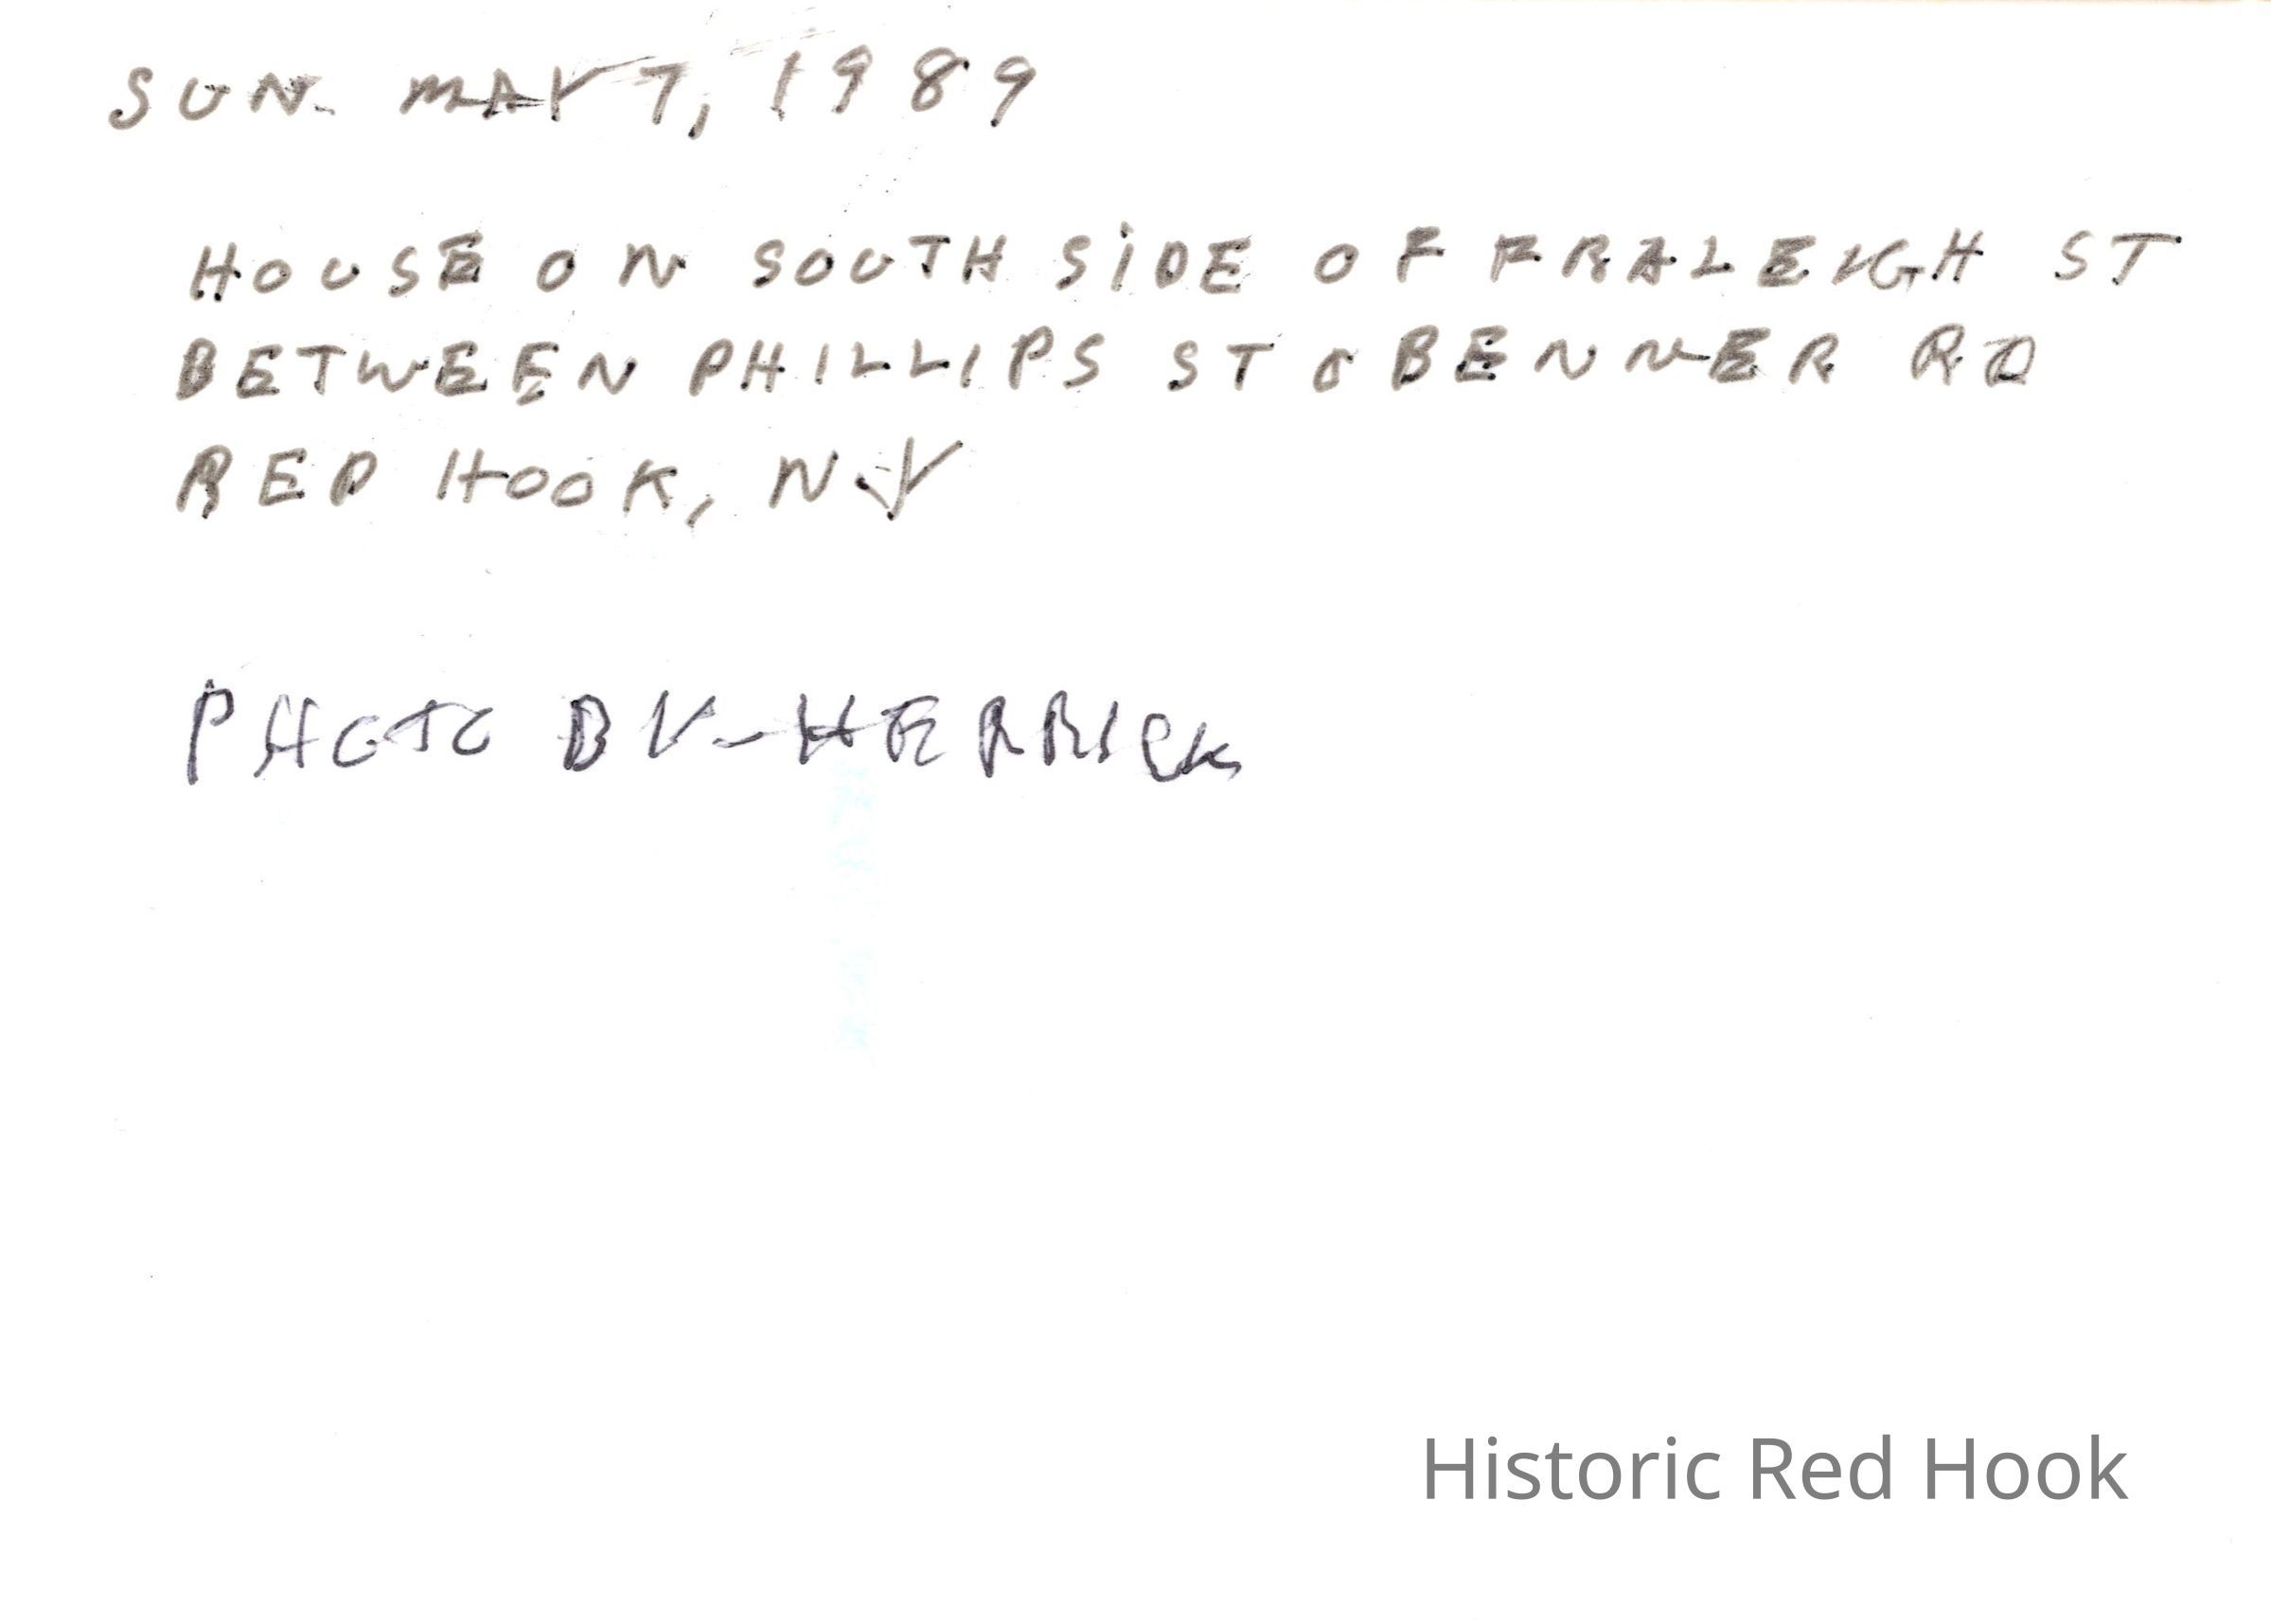 SUN. MAY 7, 1989
HOUSE ON SOUTH SIDE OF FRALEIGH ST
BETWEEN PHILLIPS ST & BENNER RD
RED HOOK, N.Y
PHOTO BY-HERRICK
Historic Red Hook